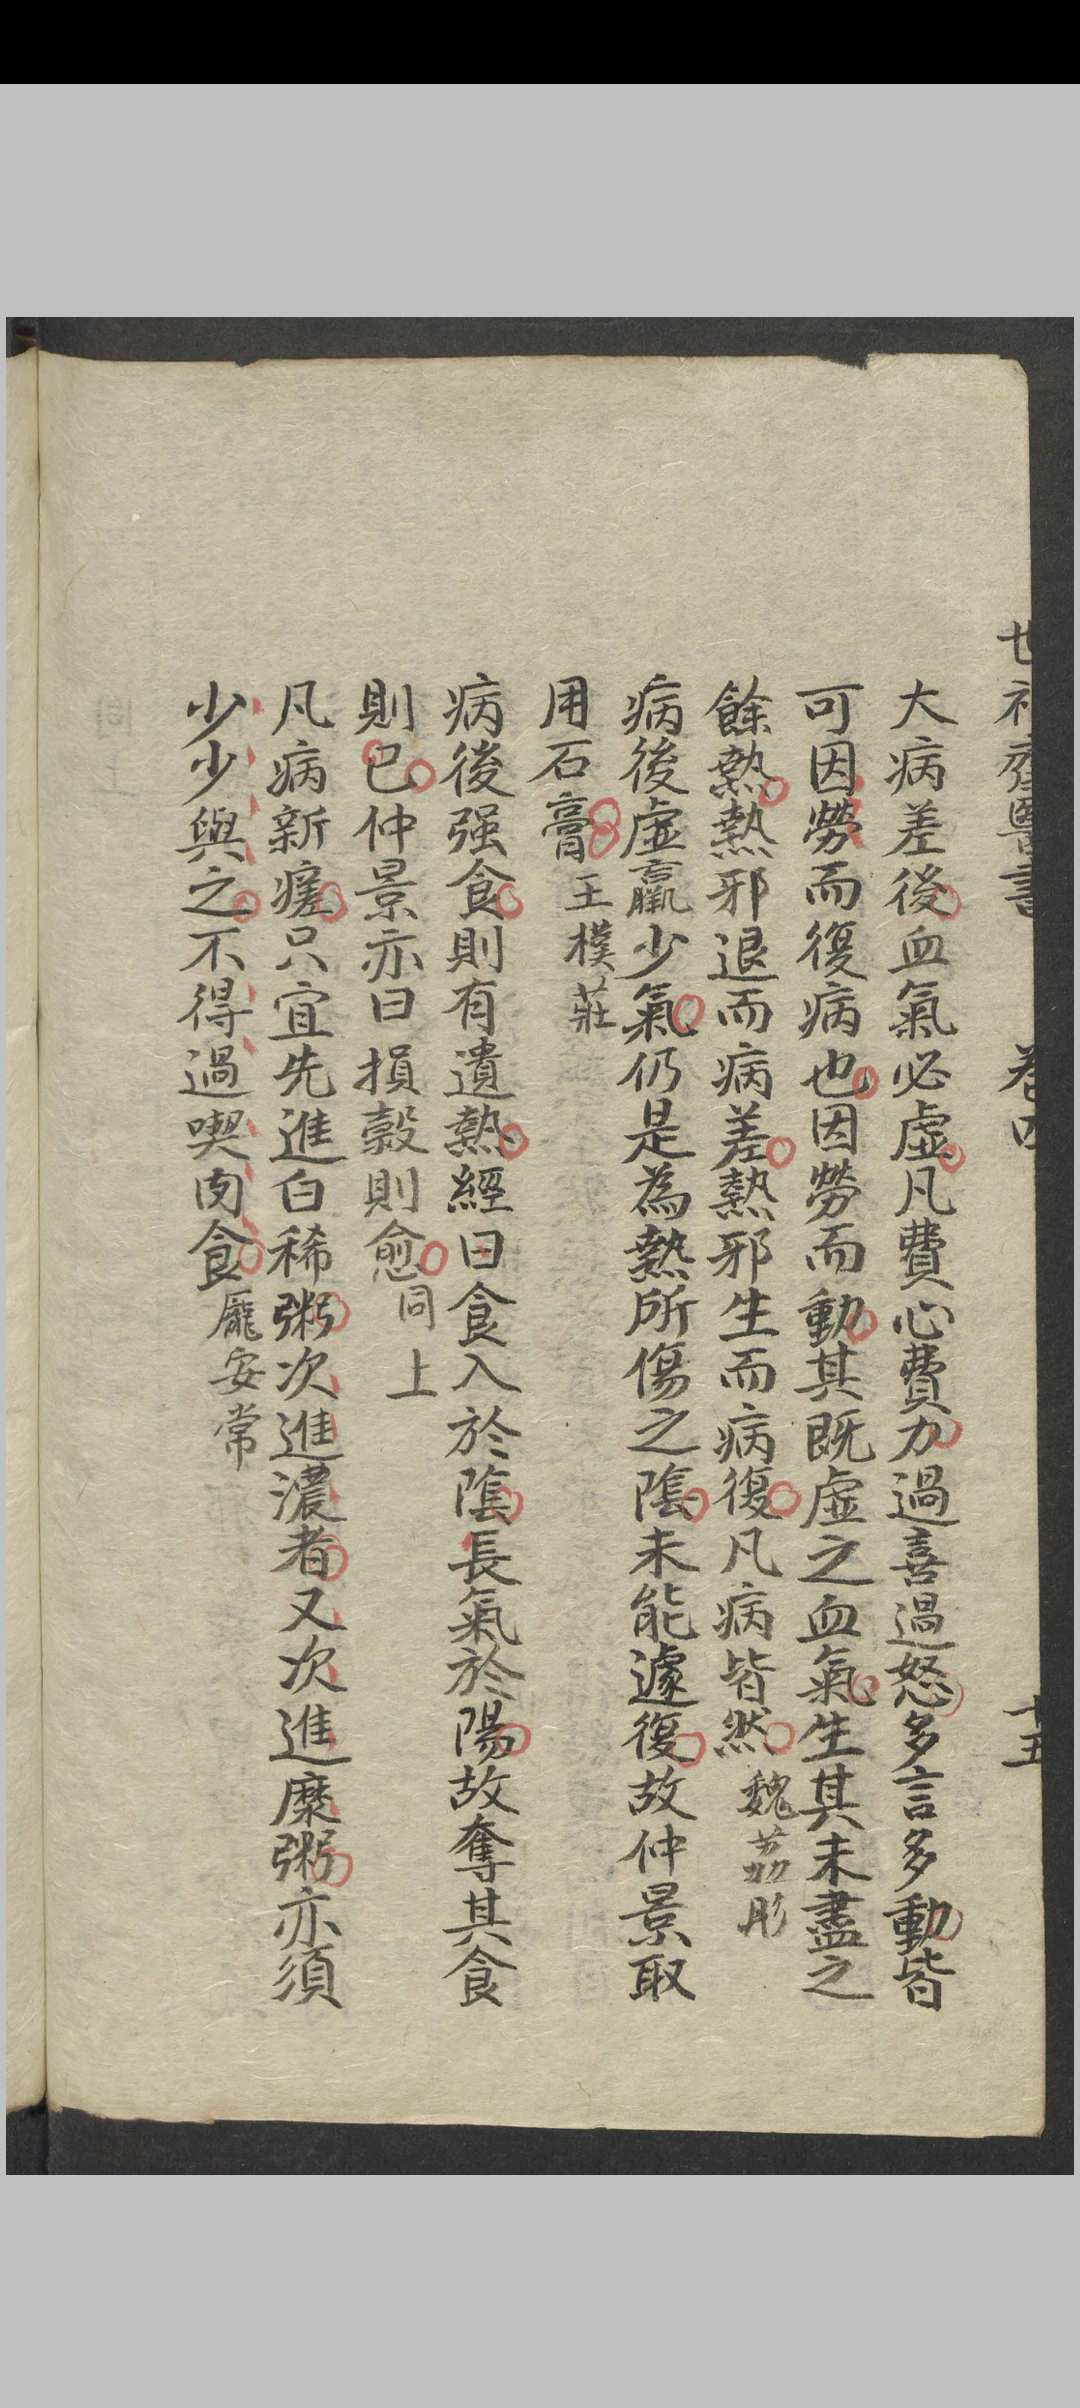 世補齋醫書 卷四 十五
大病差後血氣必虛凡費心費力過喜過怒多言多動皆
可因勞而復病也因勞而動其既虛之血氣生其未盡之
餘熱熱邪退而病差熱邪生而病復凡病皆然魏荔彤
病後虛羸少氣仍是為熱所傷之陰未能遽復故仲景取
用石膏王樸莊
病後强食則有遺熱經曰食入於陰長氣於陽故奪其食
則已仲景亦曰損穀則愈同上
凡病新瘥只宜先進白稀粥次進濃者又次進糜粥亦須
少少與之不得過喫肉食龐安常